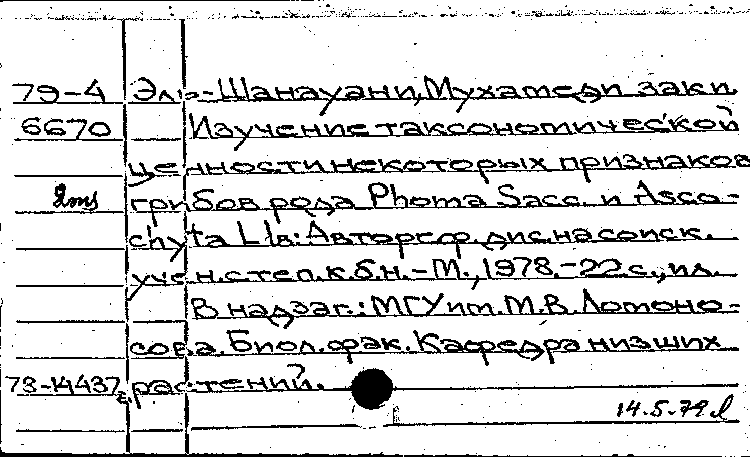 79-4 Эль-Шанауани, Мухамеди заки.
6670 Изучение таксономической
ценности некоторых признаков
грибов рода Phoma Sacc. и Asco-
chyta Lib: Автореф. дис. на соиск.
учен. степ. к.б.н. - М., 1978. - 22 с., ил.
В надзаг.: МГУ им. М.В. Ломоно-
сова. Биол. фак. Кафедра низших
78-14437 растений.
14.5.79